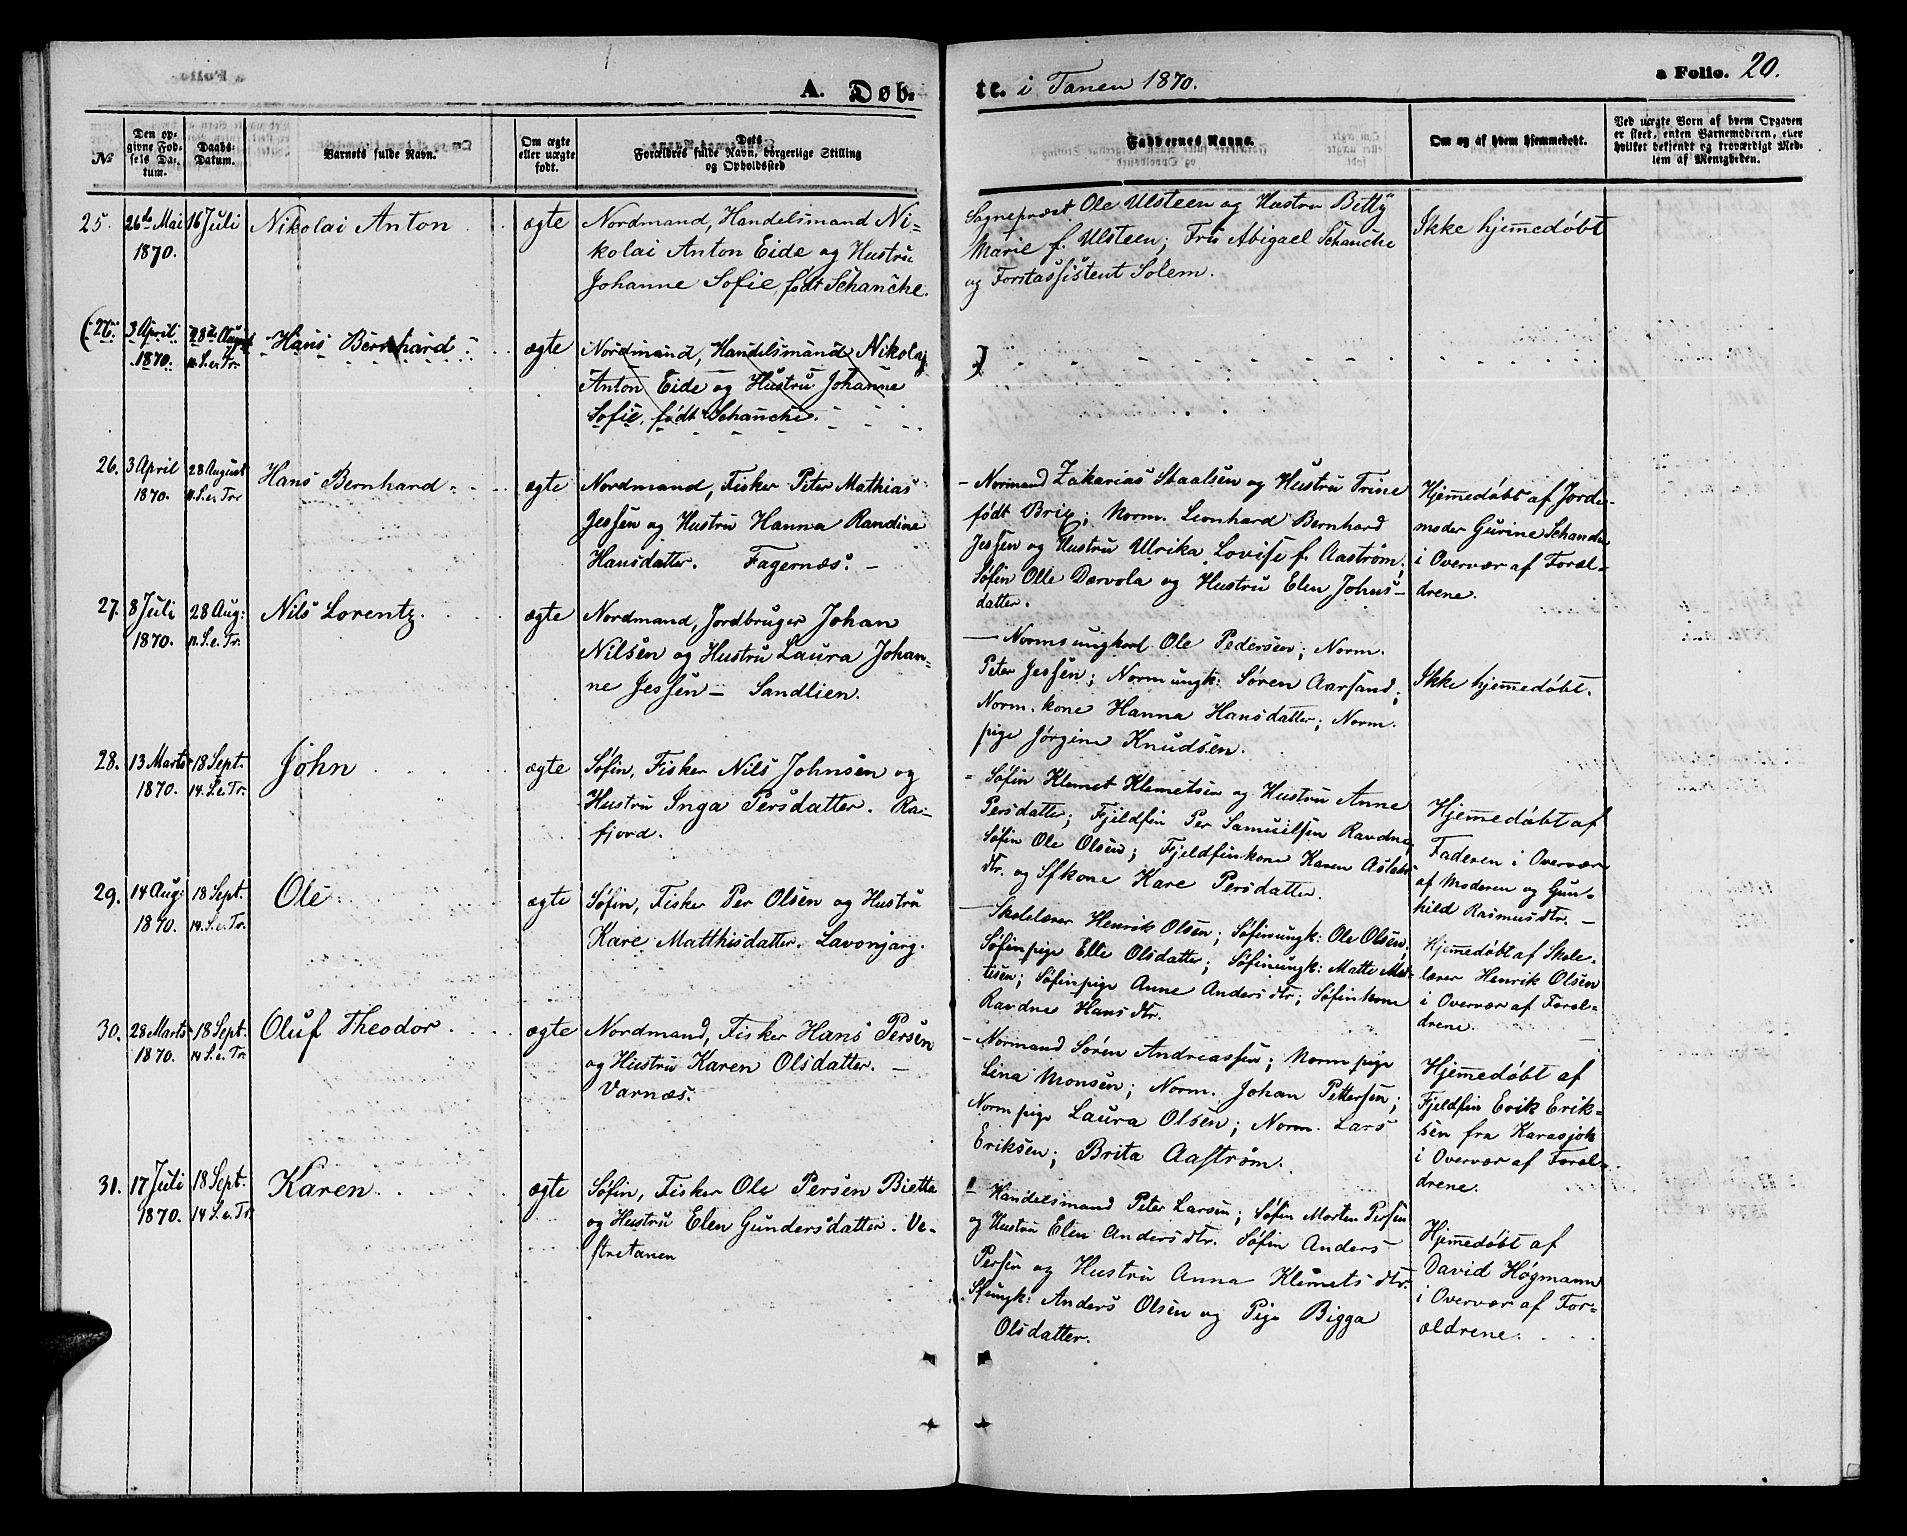 A. Døb-
te. i Tanen 1870.
a Folio. 20.
No
Den op-
givne Fød-
sels Da-
tum.
Daabs-
Datum.
Barnets fulde Navn.
Om ægte
eller uægte
født.
Dets
Forældres fulde Navn, borgerlige Stilling
og Opholdssted
Faddernes Navne.
Om og af hvem hjemmedøbt.
Ved uægte Børn af hvem Opgaven
er skeet, enten Barnemoderen, eller
hvilket bekjendt og troværdigt Med-
lem af Menigheden.
25. 26de Mai 1870. 16 Juli Nikolai Anton ægte
Nordmand, Handelsmand Ni=
kolai Anton Eide og Hustru
Johanne Sofie, født Schanche.
Sognepræst Ole Ulsteen og Hustru Betty
Marie f. Ulsteen; Frk Abigael Schanche
og Forstassistent Solem.
Ikke hjemmedøbt
(26. 3 April 1870. 28de August 11. S. e. Tr. Hans Bernhard ægte
Nordmand, Handelsmand Nikolaj
Anton Eide og Hustru Johanne
Sofie, født Schanche. )
26. 3 April 1870. 28 August 11. S. e. Tr Hans Bernhard ægte
Nordmand, Fisker Peter Mathias
Jessen og Hustru Hanna Randine
Hansdatter. Fagernæs. -
- Normand Zakarias Staalsen og Hustru Trine
født Brix; Norm. Leonhard Bernhard
Jessen og Hustru Ulrika Lovise f. Aaström;
Søfin Olle Dærvola og Hustru Elen Johns-
datter.
Hjemmedøbt af Jorde-
moder Gurine Schanche
i Overvær af Foræl-
drene.
27. 8 Juli 1870. 28 Aug: 11. S. e. Tr. Nils Lorentz. ægte
Nordmand, Jordbruger Johan
Nilsen og Hustru Laura Johan-
ne Jessen - Sandlien.
- Normsungkarl Ole Pedersen; Norm.
Peter Jessen; Normungk: Søren Aarsand;
Norm. kone Hanna Hansdatter; Norm.
pige Jørgine Knudsen.
Ikke hjemmedøbt.
28. 13 Marts 1870. 18 Sept. 14. S. e. Tr. John ægte
Søfin, Fisker Nils Johnsen og
Hustru Inga Persdatter. Ra-
fjord.
= Søfin Klemet Klemetsen og Hustru Anne
Persdatter; Fjeldfin Per Samuelsen Ravdna,
Søfin Ole Olsen; Fjeldfinkone Karen Aslaks
dtr. og Sfkone Kare Persdatter.
Hjemmedøbt af
Faderen i Overvær
af Moderen og Gun-
hild Rasmusdtr. -
29. 14 Aug: 1870. 18 Sept. 14. S. e. Tr. Ole ægte
Søfin, Fisker Per Olsen og Hustru
Kare Matthisdatter. Lavonjarg.
- Skolelærer Henrik Olsen; Søfinungk: Ole Olsen;
Søfinpige Elle Olsdatter; Søfinungk: Matte Mat-
tisen; Søfinpige Anne Andersdtr; Søfinkone
Ravdne Hansdtr.
Hjemmedøbt af Skole-
lærer Henrik Olsen
i Overvær af Foræl-
drene.
30. 28 Marts 1870. 18 Sept. 14 S. e. Tr. Oluf Theodor. ægte
Nordmand, Fisker Hans Persen
og Hustru Karen Olsdatter. -
Varnæs.
- Normand Søren Andreassen; Norm pige
Lina Monsen; Norm. Johan Pettersen;
Norm pige Laura Olsen; Norm. Lars
Eriksen; Brita Aaström.
Hjemmedøbt af
Fjeldfin Erik Erik-
sen fra Karasjok
i Overvær af Foræl-
drene.
31. 17 Juli 1870. 18 Sept. 14 S. e. Tr. Karen ægte
Søfin, Fisker Ole Persen Bietta
og Hustru Elen Gundersdatter. Ve-
stretanen
- Handelsmand Peter Larsen; Søfin Morten Persen
og Hustru Elen Andersdtr. Søfin Anders
Persen og Hustru Anna Klemetsdtr.
Sfungk: Anders Olsen og Pige Bigga
Olsdatter.
Hjemmedøbt af
David Høgmann
i Overvær af For-
ældrene.